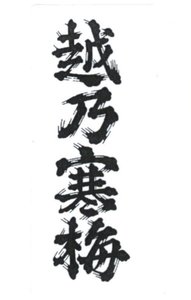 越乃寒梅